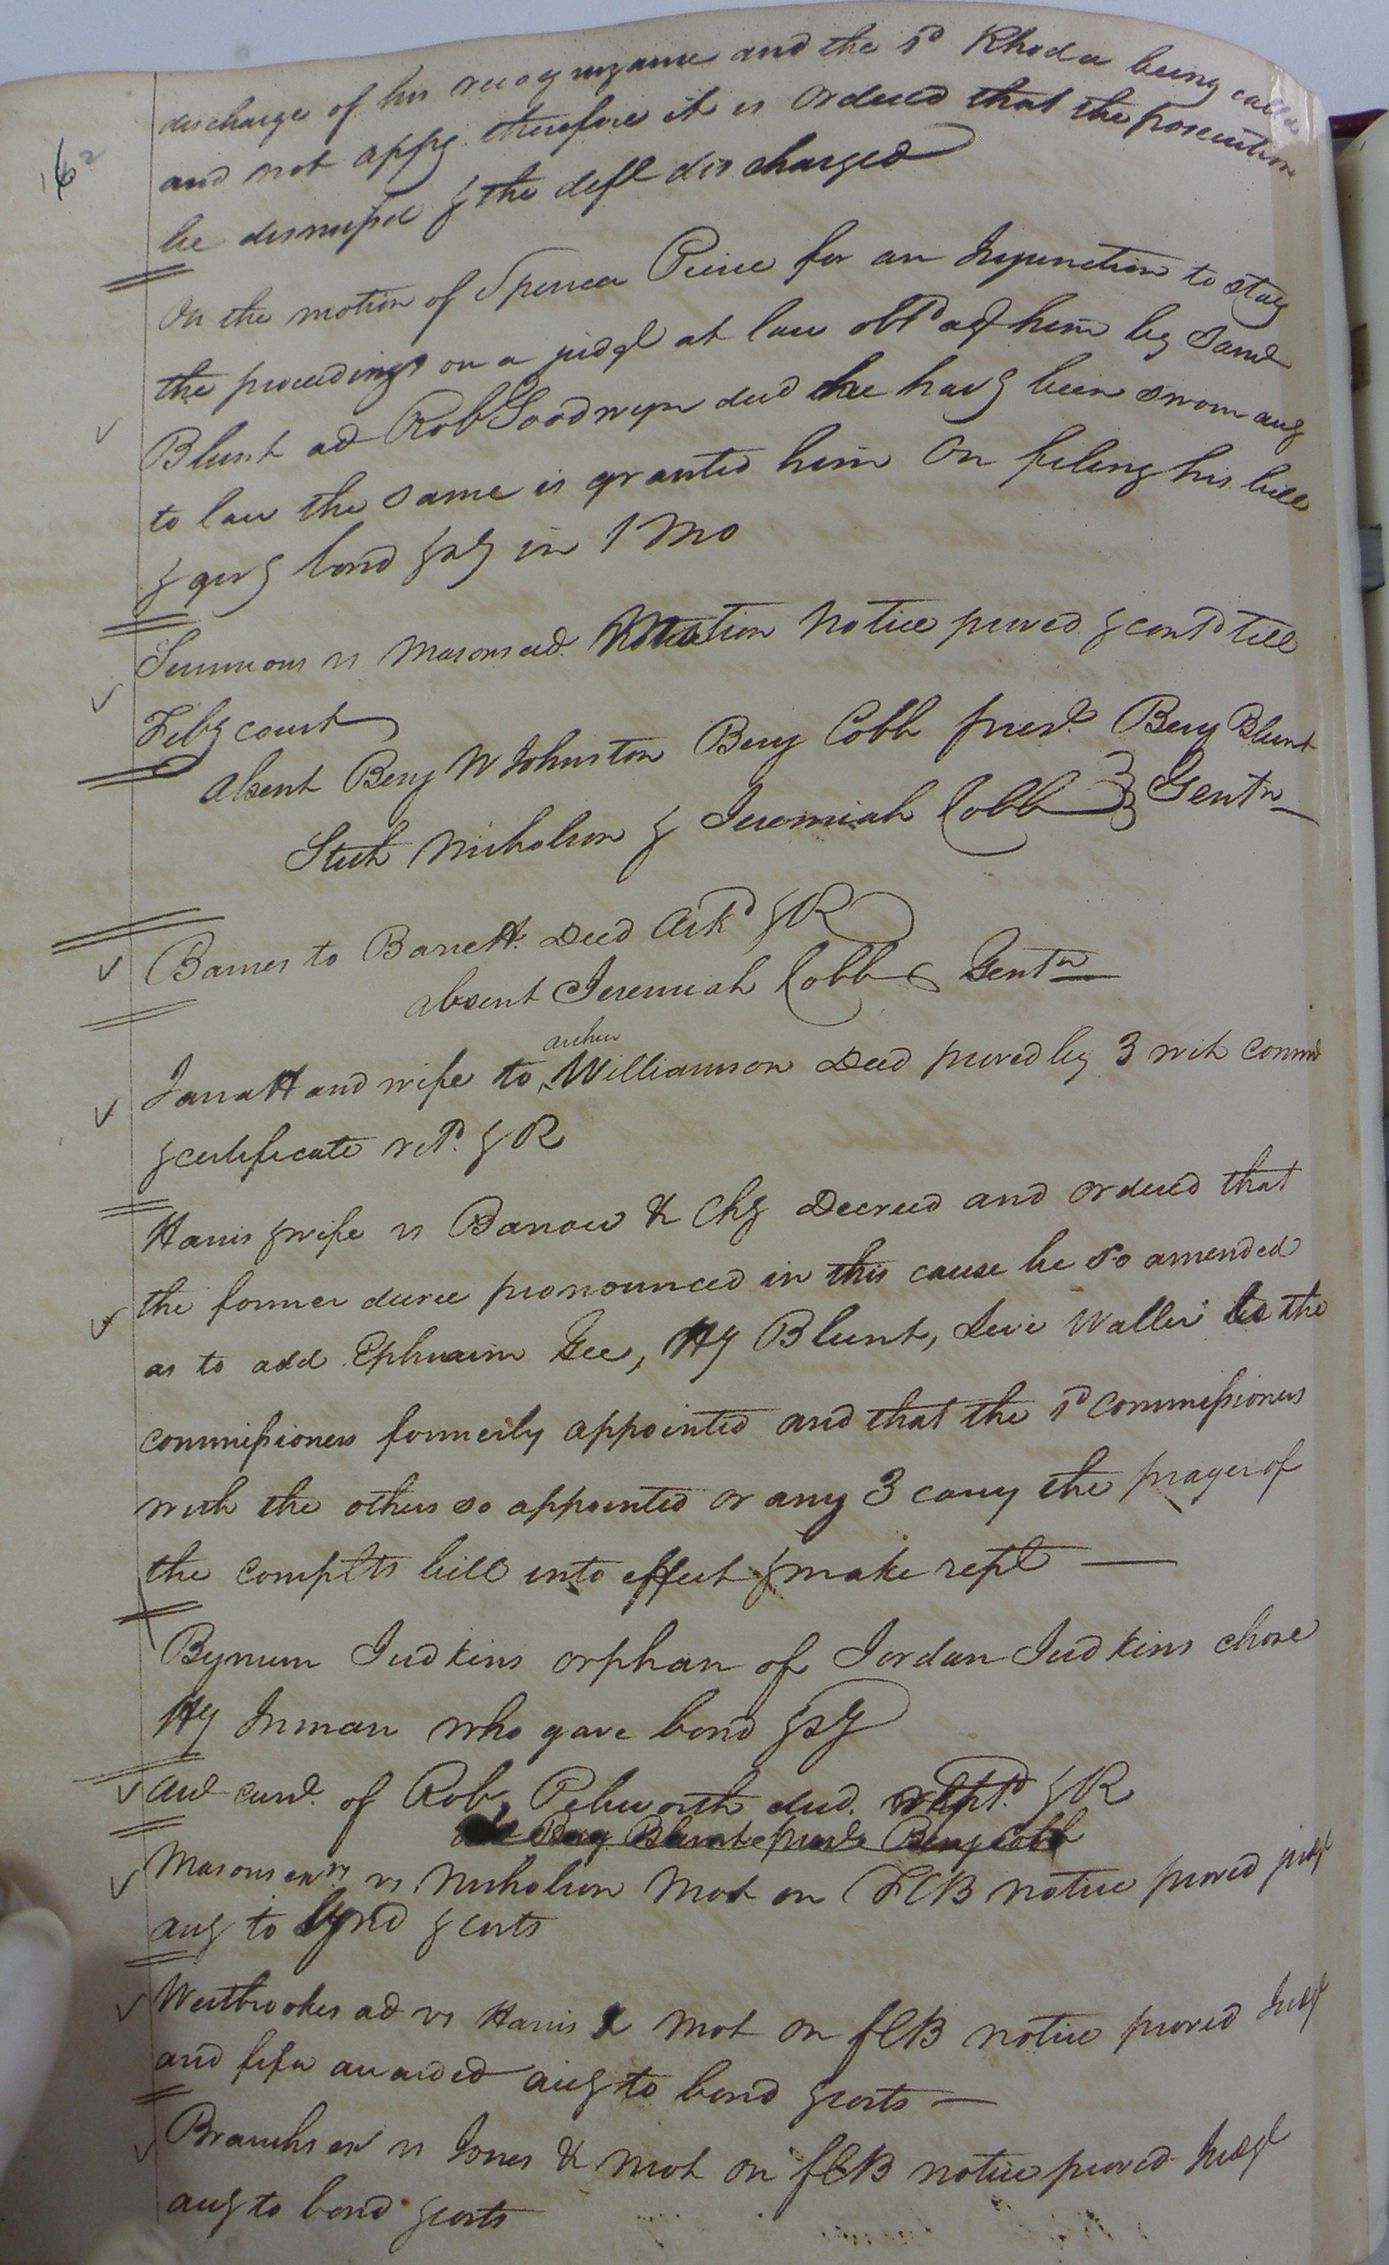 162
discharge of his recognizance and the sd Rhoda being called
and not appg therefore it is Ordered that the prosecution
be dismissed & the deft discharged
On the motion of Spencer Peirce for an Injunction to stay
the proceedings on a judgt at law obtd agt him by Saml
Blunt ad Rob Goodwyn decd he havg been sworn accg
to law the same is granted him On filing his bill
& givg bond & sy in 1 Mo
Simmons vs Masons ad Motion Notice proved & contd till
Feby court
absent Benj W Johnston Benj Cobb prest. Benj Blunt
Stith Nicholson & Jeremiah Cobb Gentn
Barnes to Barrett Deed Ackd & R
absent Jeremiah Cobb Gentn
archer
Jarratt and wife to Williamson Deed proved by 3 wit commn
& certificate retd. & R
Harris & wife vs Barrow & Chy Decreed and ordered that
the former decree pronounced in this cause be so amended
as to add Ephraim Gee, Hy Blunt, Levi Waller to the
commissioners formerly appointed and that the sd commissioners
with the others so appointed or any 3 carry the prayer of
the complts bill into effect & make rept
Bynum Judkins orphan of Jordan Judkins chose
Hy Inman who gave bond & sy
aud curt. of Rob Pebworth decd. & R
Benj Blunt prest Benj Cobb
Masons exrs vs Nicholson Mot on FCB notice proved judgt
accg to & costs
Westbrookes ad vs Harris & Mot on fCB notice proved Judgt
and fifa awarded accg to bond & costs
Branchs ex vs Jones & Mot on fCB notice proved Judgt
accg to bond & costs